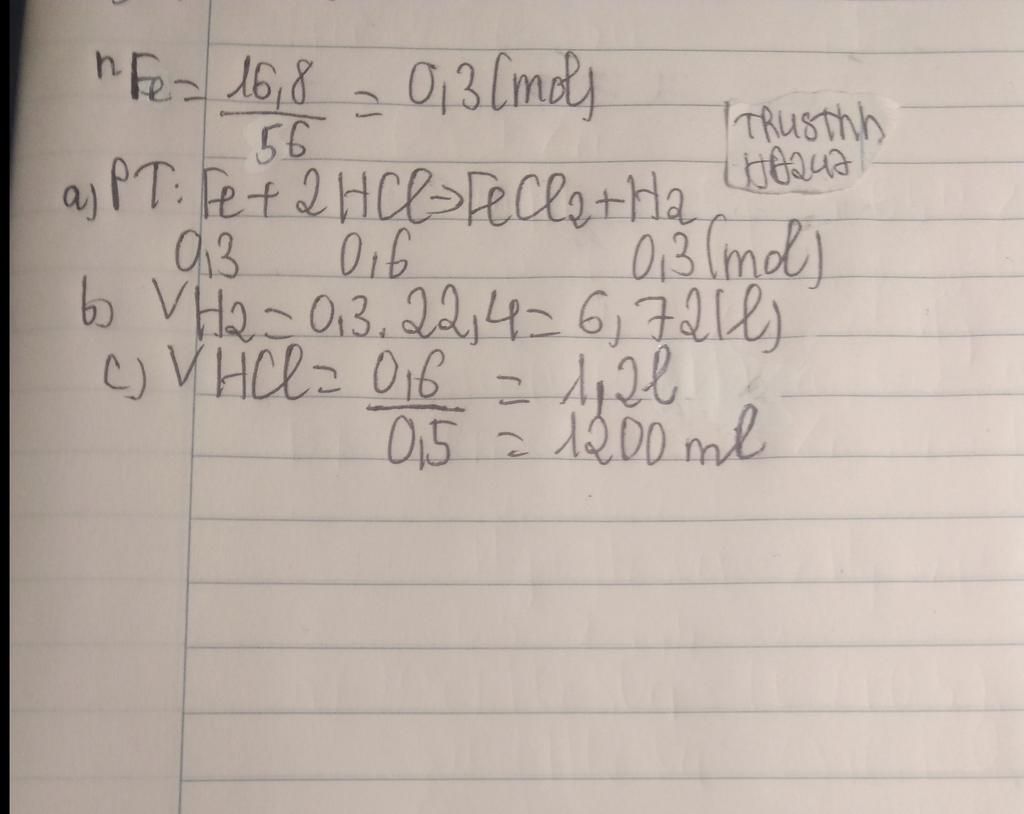 nFe = 16,8 / 56 = 0,3 (mol)
TRUSThh
a) PT: Fe + 2HCl => FeCl2 + H2
0,3 0,6 0,3 (mol)
b) VH2 = 0,3 . 22,4 = 6,72 (l)
c) VHCl = 0,6 / 0,5 = 1,2l
= 1200 ml